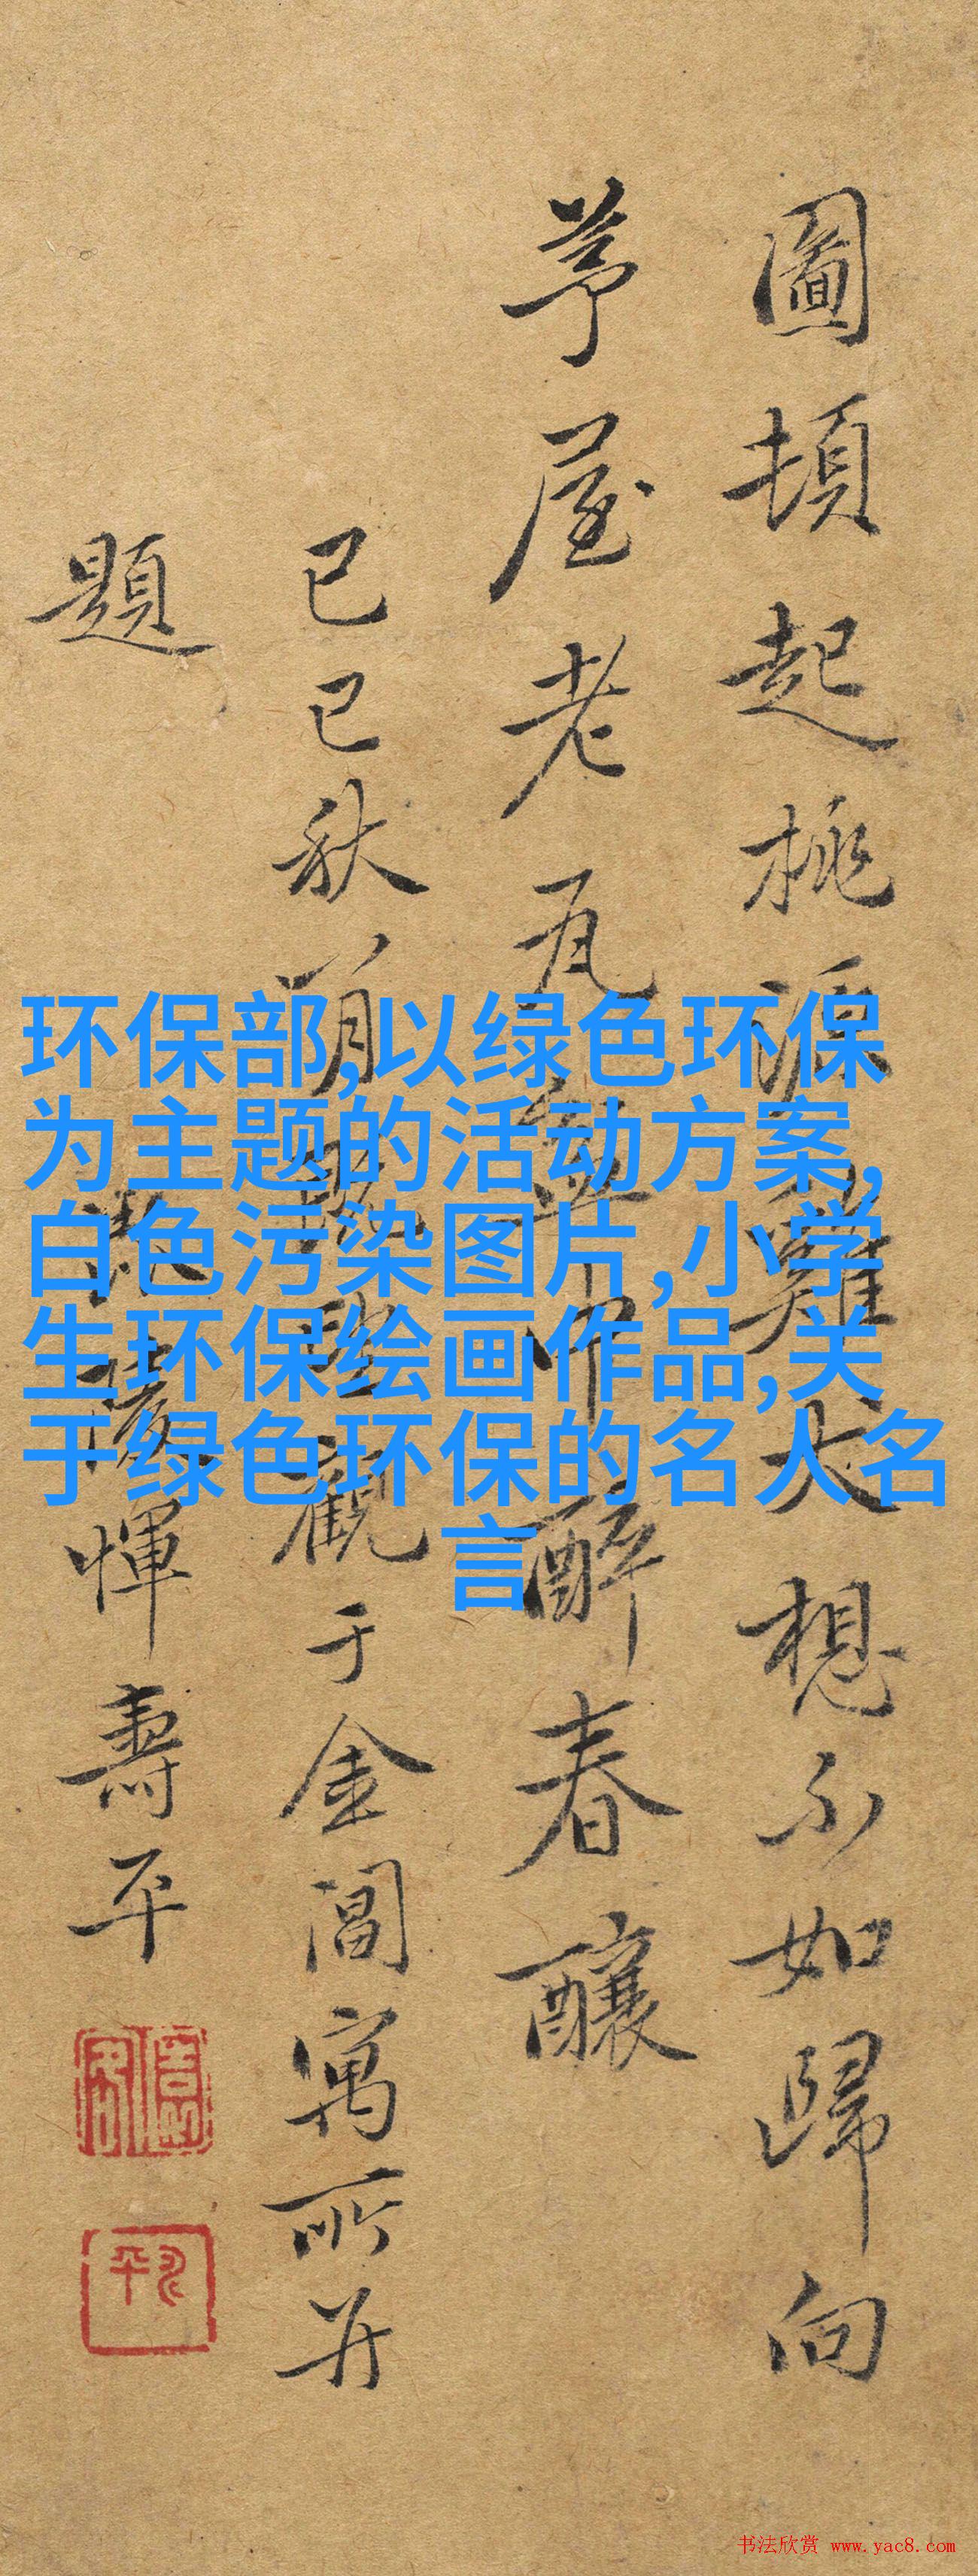 圖頓起桃源雞犬想不如歸向
茅屋老瓦盆中醉春釀
已已秋八月既望觀于金閶寓所并
題
惲壽平
环保部,以绿色环保
为主题的活动方案,
白色污染图片,小学
生环保绘画作品,关
于绿色环保的名人名
言
书法欣赏 www.yac8.com